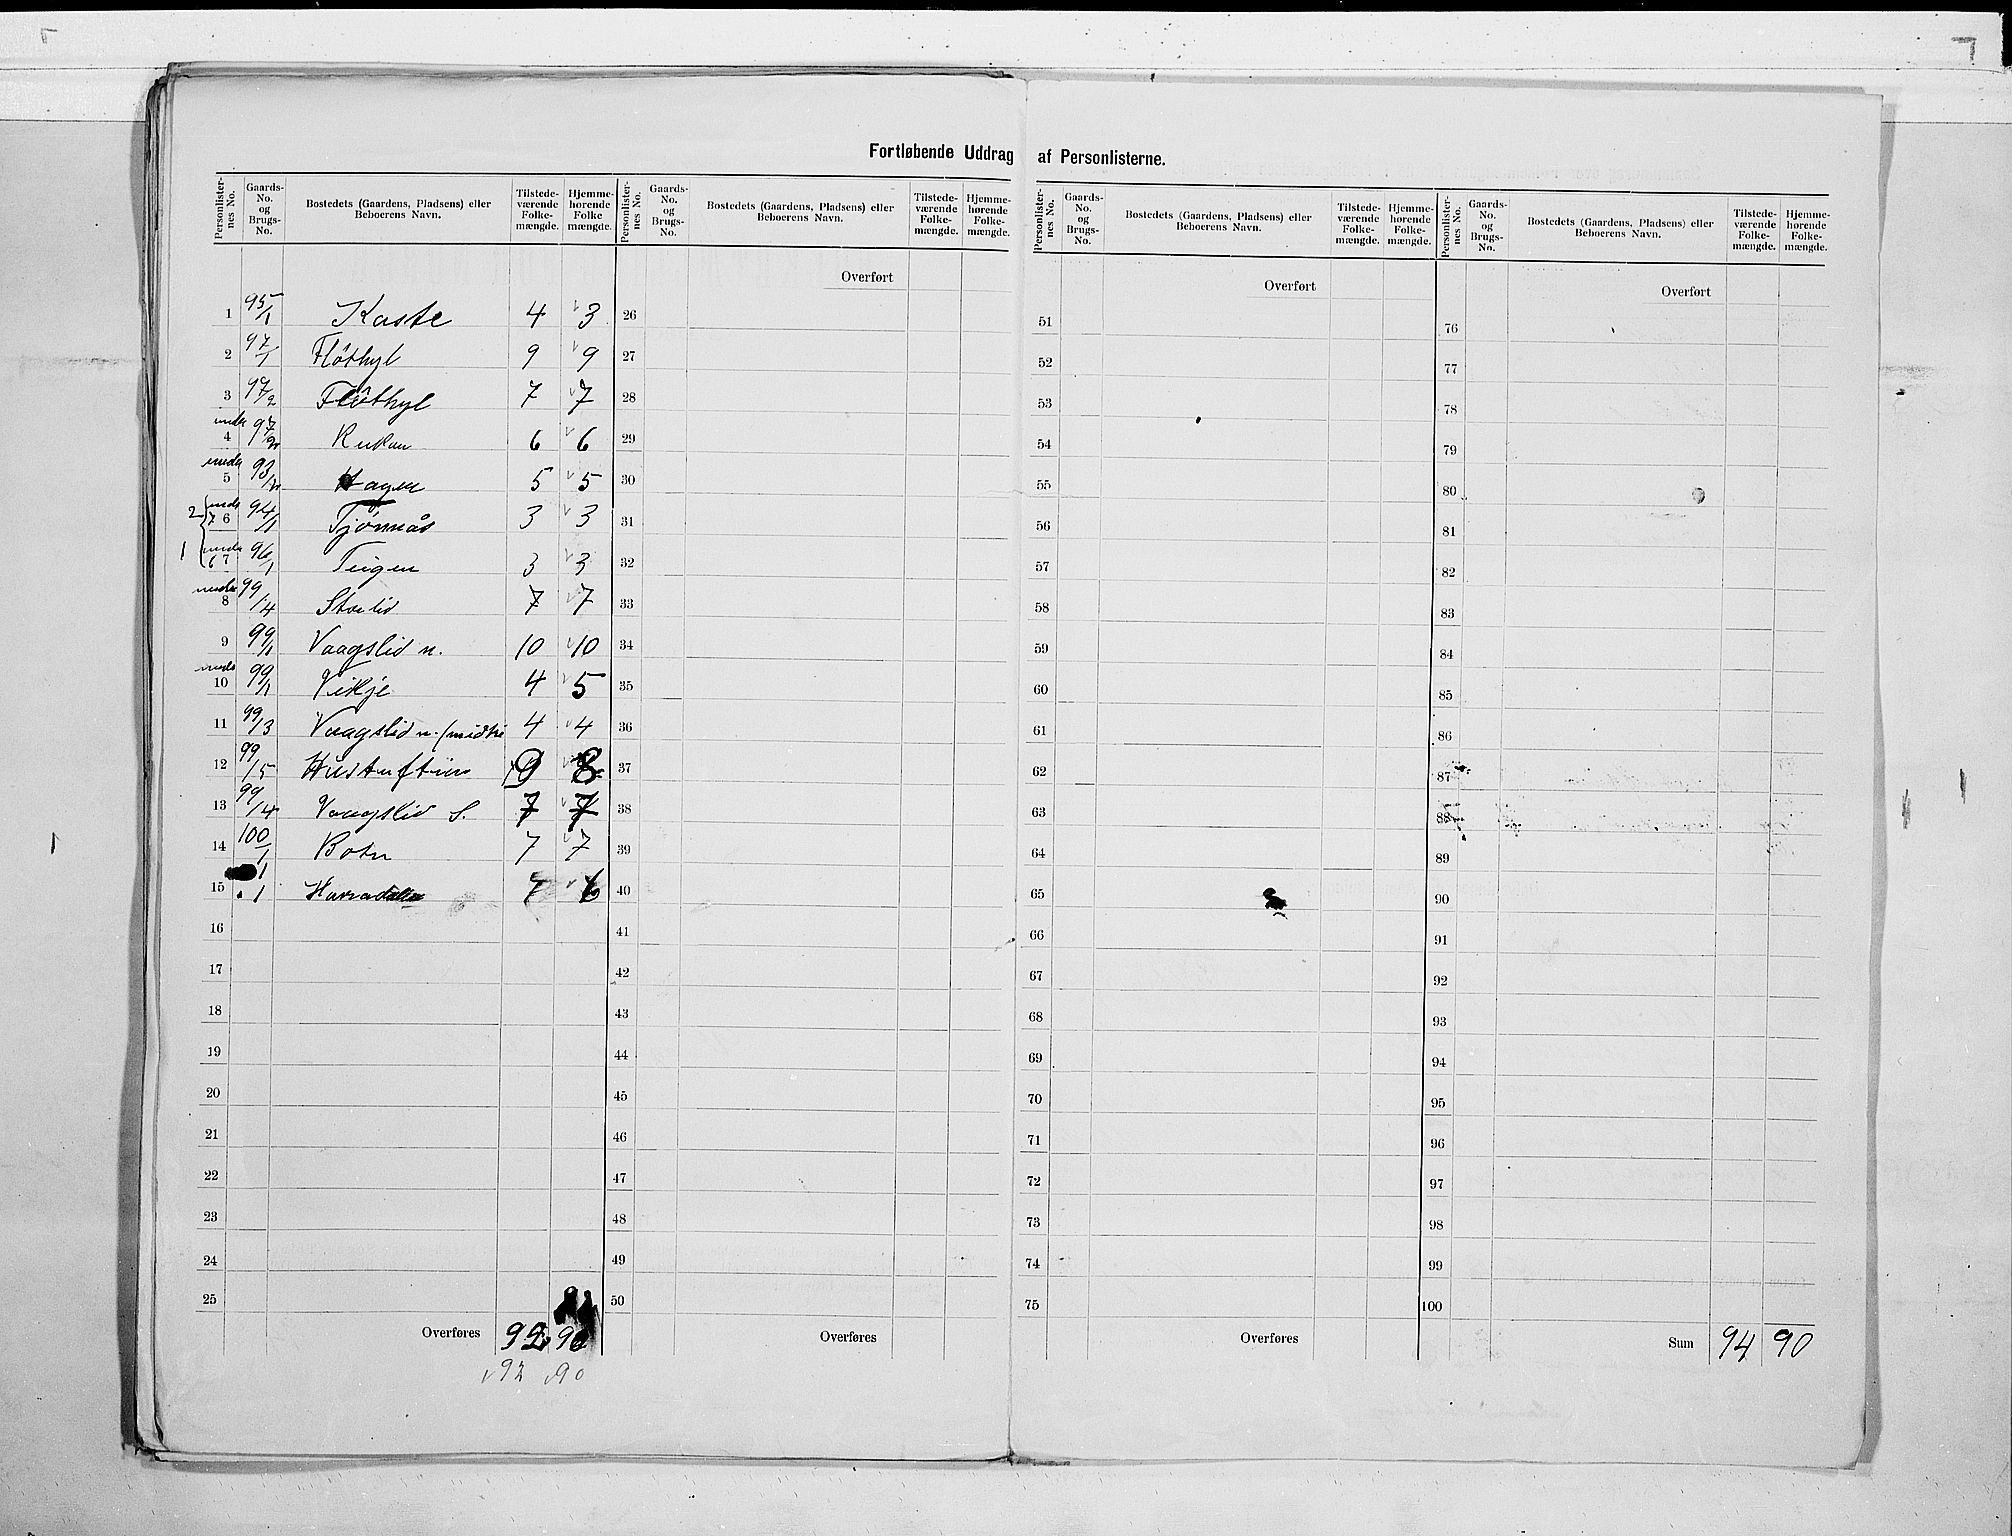 Fortløbende Uddrag af Personlisterne.
Personlisternes No. Gaards-No. og Brugs-No. Bostedets (Gaardens, Pladsens) eller Beboerens Navn. Tilstedeværende Folkemængde. Hjemmehørende Folkemængde.
1 95/1 Kaste 4 3
2 97/1 Flöthyl 9 9
3 97/2 Flöthyl 7 7
4 97/2 Rukan 6 6
5 93/2 Hagen 5 5
2 7 6 94/1 Tjönnås 3 3
1 6 7 96/1 Teigen 3 3
8 99/4 Storlid 7 7
9 99/1 Vaagslid n. 10 10
10 99/1 Vikje 4 5
11 99/3 Vaagslid n. (midtre 4 4
12 99/5 Hustuftun 9 8
13 99/4 Vaagslid S. 7 7
14 100/1 Botn 7 7
15 1 7 6
16
17
18
19
20
21
22
23
24
25
Overføres 92 90
v 92 v 90
Personlisternes No. Gaards-No. og Brugs-No. Bostedets (Gaardens, Pladsens) eller Beboerens Navn. Tilstedeværende Folkemængde. Hjemmehørende Folkemængde.
Overført
26
27
28
29
30
31
32
33
34
35
36
37
38
39
40
41
42
43
44
45
46
47
48
49
50
Overføres
Personlisternes No. Gaards-No. og Brugs-No. Bostedets (Gaardens, Pladsens) eller Beboerens Navn. Tilstedeværende Folkemængde. Hjemmehørende Folkemængde.
Overført
51
52
53
54
55
56
57
58
59
60
61
62
63
64
65
66
67
68
69
70
71
72
73
74
75
Overføres
Personlisternes No. Gaards-No. og Brugs-No. Bostedets (Gaardens, Pladsens) eller Beboerens Navn. Tilstedeværende Folkemængde. Hjemmehørende Folkemængde.
Overført
76
77
78
79
80
81
82
83
84
85
86
87
88
89
90
91
92
93
94
95
96
97
98
99
100
Sum 94 90